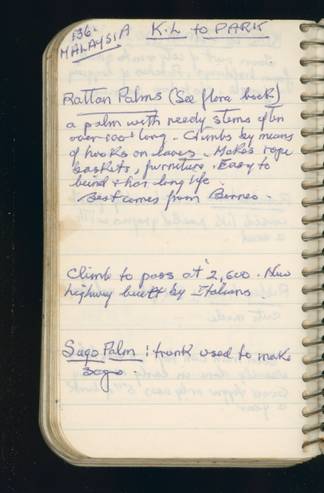 136.
MALAYSIA K.L to PARK
Rattan Palms (See flora book)
a palm with reedy stems often
over 200' long. Climbs by means
of hooks on leaves. Makes rope
baskets, furniture. Easy to
bend & has long life.
Best comes from Borneo.
Climb to pass at 2,600. New
highway built by Italians.
Sago Palm : trunk used to make
sago.